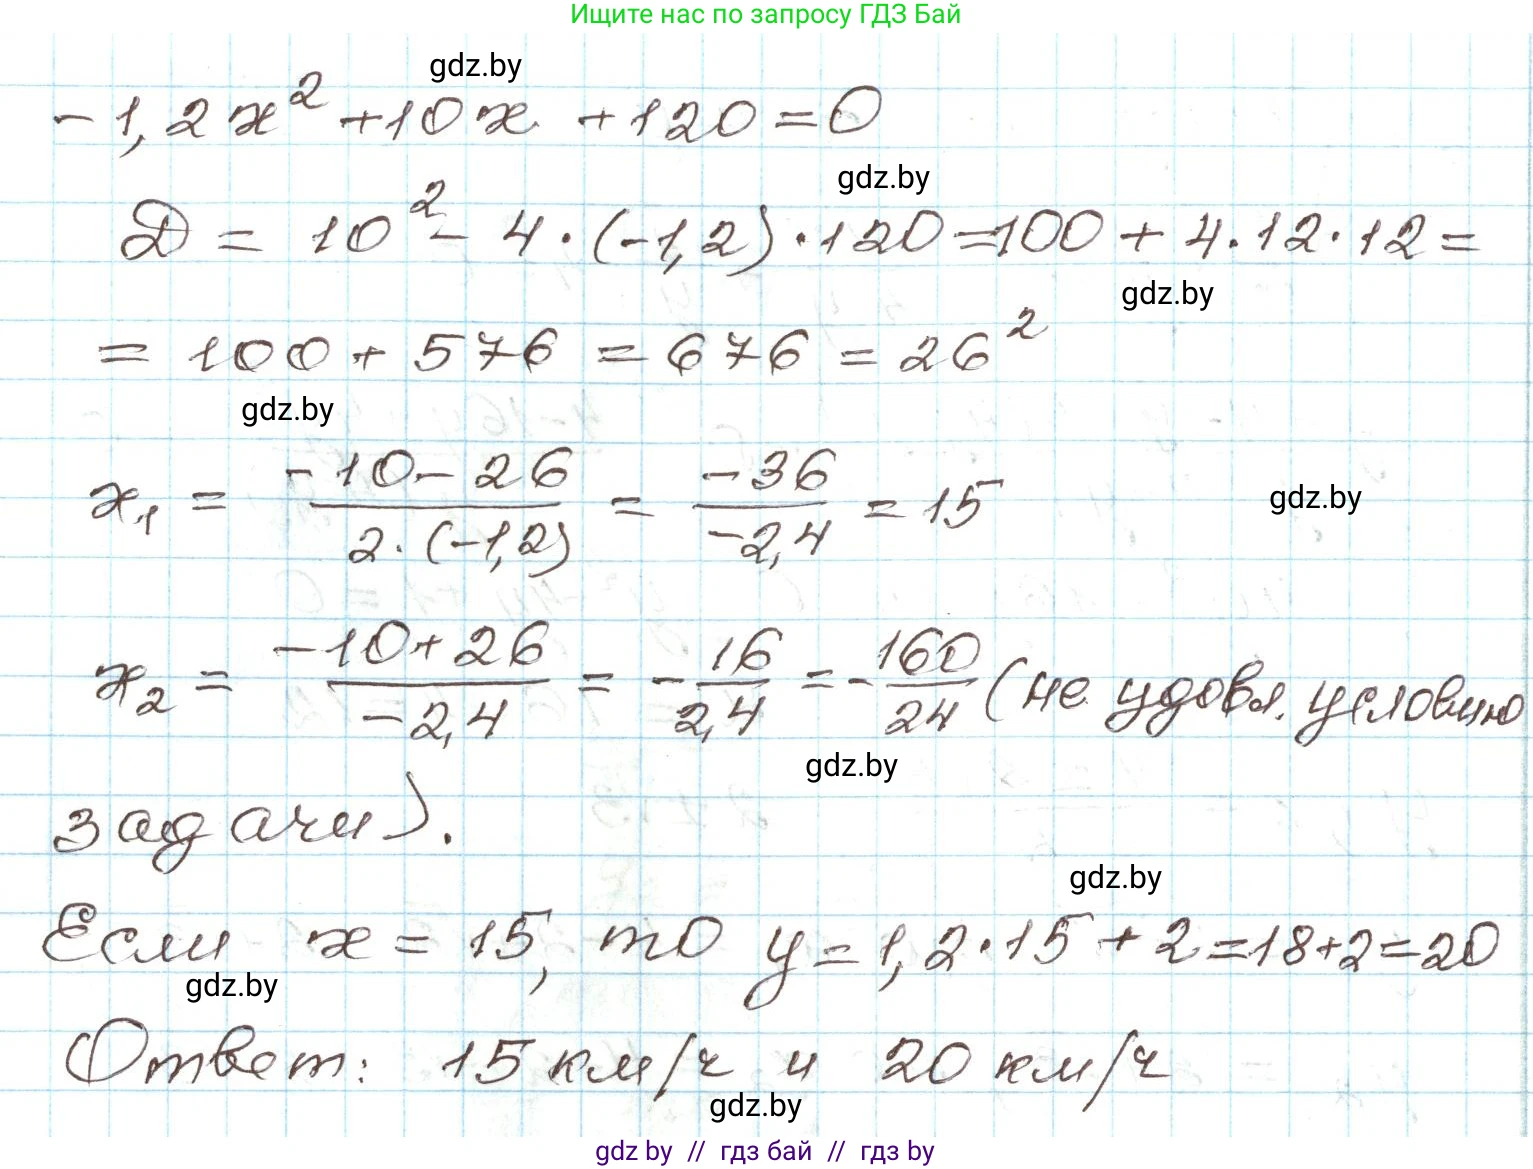 Ищите нас по запросу ГДЗ Бай
gdz.by
-1,2x² +10x +120=0
gdz.by
D = 10² - 4·(-1,2)·120=100 + 4·12·12=
gdz.by
= 100+576=676=26²
gdz.by
x₁ = (-10-26)/(2·(-1,2)) = (-36)/(-2,4) = 15
gdz.by
x₂ = (-10+26)/(-2,4) = -16/2,4 = -160/24 (не удовл. условию
gdz.by
задачи).
gdz.by
Если x = 15, то y=1,2·15+2=18+2=20
gdz.by
Ответ: 15 км/ч и 20 км/ч
gdz.by
gdz by // гдз бай // гдз by